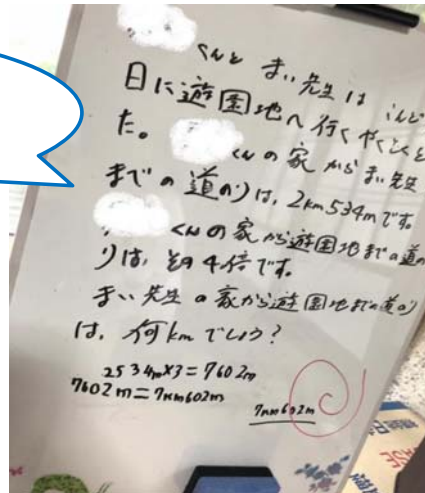 くんと まい先生は こんど
日に遊園地へ行くやくそくを
た。 くんの家からまい先生
までの道のりは、2km534mです。
くんの家から遊園地までの道の
りは、その4倍です。
まい先生の家から遊園地までの道のり
は、何kmでしょう?
2534m×3=7602m
7602m=7km602m
7km602m